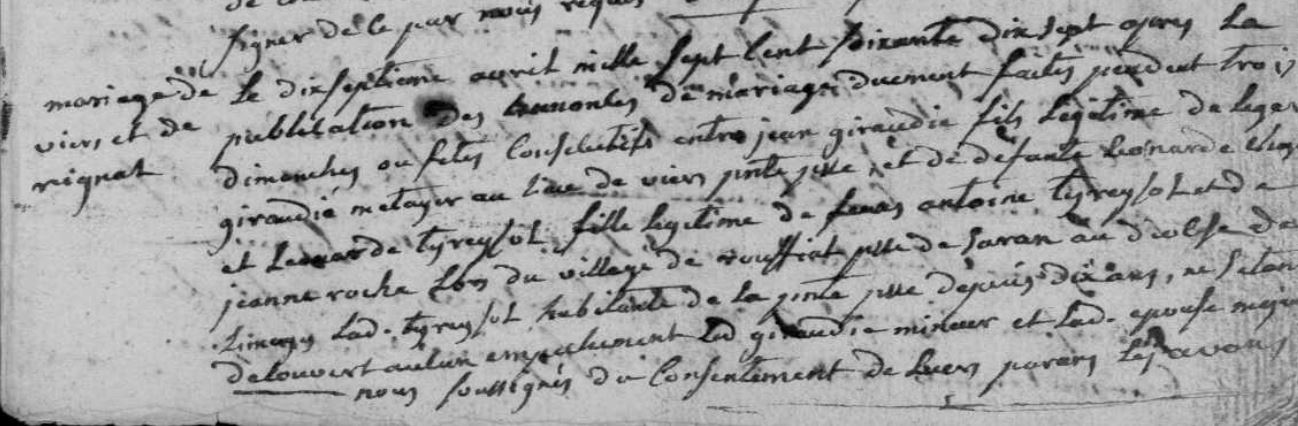 signer de ce par nous requis
mariage de Le dixseptieme avril mille sept cent soixante dix sept apres La
viers et de publication des annonces de mariage duement faites pendent trois
rignat dimanches ou fetes Consecutifs entre jean giraudie fils Legitime de Leger
giraudie metayer au Lieu de viers pnte psse, et de defunte Leonarde
et Leonarde tyreysot fille legitime de feux antoine tyreysot et de
jeanne roche Lors du village de rouffiat psse de Saran au diocese de
Limoges Lad. tyreysot habitante de La pnte psse depuis dix ans, ne setan
decouvert aucun empechement Led giraudie mineur et Lad. epouse majeu
nous soussignés du Consentement de Leurs parans Les avons